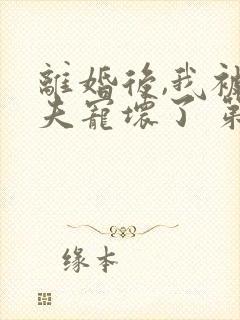 離婚後,我被
夫寵壞了 第
缘本